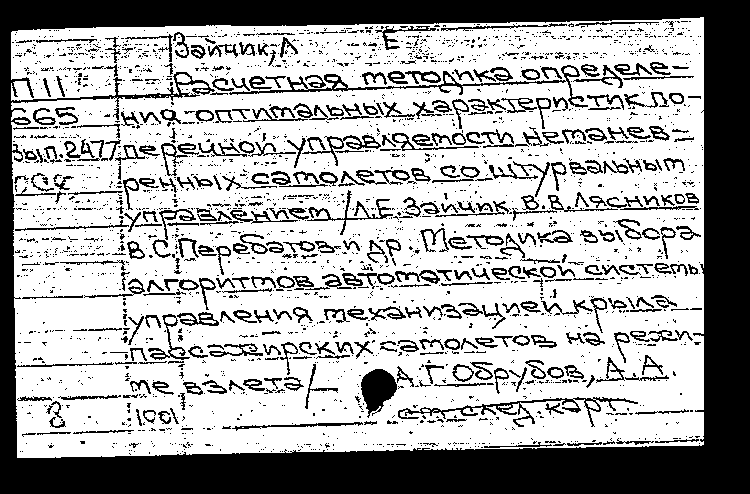 Зайчик, Л Е
П 11 Расчетная методика определе-
665 ния оптимальных характеристик по-
Вып.2477 перечной управляемости неманев-
ренных самолетов со штурвальным
управлением / Л.Е.Зайчик, В.В.Лясников
В.С.Перебатов и др. Методика выбора
алгоритмов автоматической системы
управления механизацией крыла
пассажирских самолетов на режи-
ме взлета / — А.Г.Обрубов, А.А.
8 1001 см. след. карт.